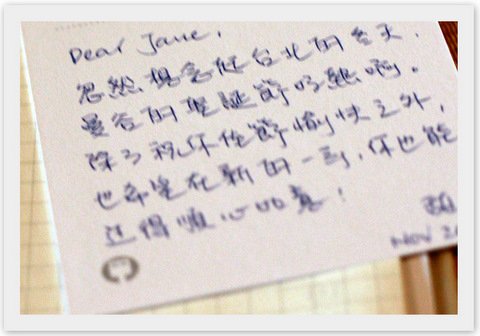 Dear Jane,
忽然想念起台北的冬天.
曼谷的聖誕節好熱啊。
除了祝你佳節愉快之外,
也希望在新的一年,你也能
過得順心如意!
NOV 20